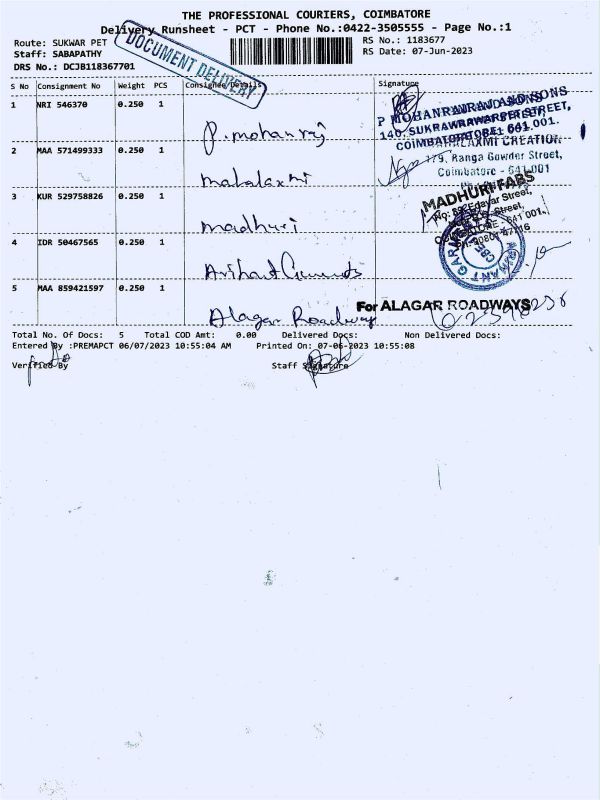 THE PROFESSIONAL COURIERS, COIMBATORE
Delivery Runsheet - PCT - Phone No.:0422-3505555 - Page No.:1
Route: SUKWAR PET
Staff: SABAPATHY
DRS No.: DCJB118367701
DOCUMENT DELIVERY
RS No.: 1183677
RS Date: 07-Jun-2023
S No Consignment No Weight PCS Consignee Details Signature
1 NRI 546370 0.250 1 P. mohan raj
P MOHANRAJ AND SONS
140, SUKRAWARPET STREET,
COIMBATORE - 641 001.
2 MAA 571499333 0.250 1 mahalaxmi
LAXMI CREATION
179, Ranga Gowder Street,
Coimbatore - 641 001
3 KUR 529758826 0.250 1 madhuri
MADHURI FABS
Edayar Street,
641 001.
4 IDR 50467565 0.250 1 Arihant Garments
ARIHANT GARMENTS
CBE
5 MAA 859421597 0.250 1 Alagar Roadways
For ALAGAR ROADWAYS
Total No. Of Docs: 5 Total COD Amt: 0.00 Delivered Docs: Non Delivered Docs:
Entered By :PREMAPCT 06/07/2023 10:55:04 AM Printed On: 07-06-2023 10:55:08
Verified By Staff Signature